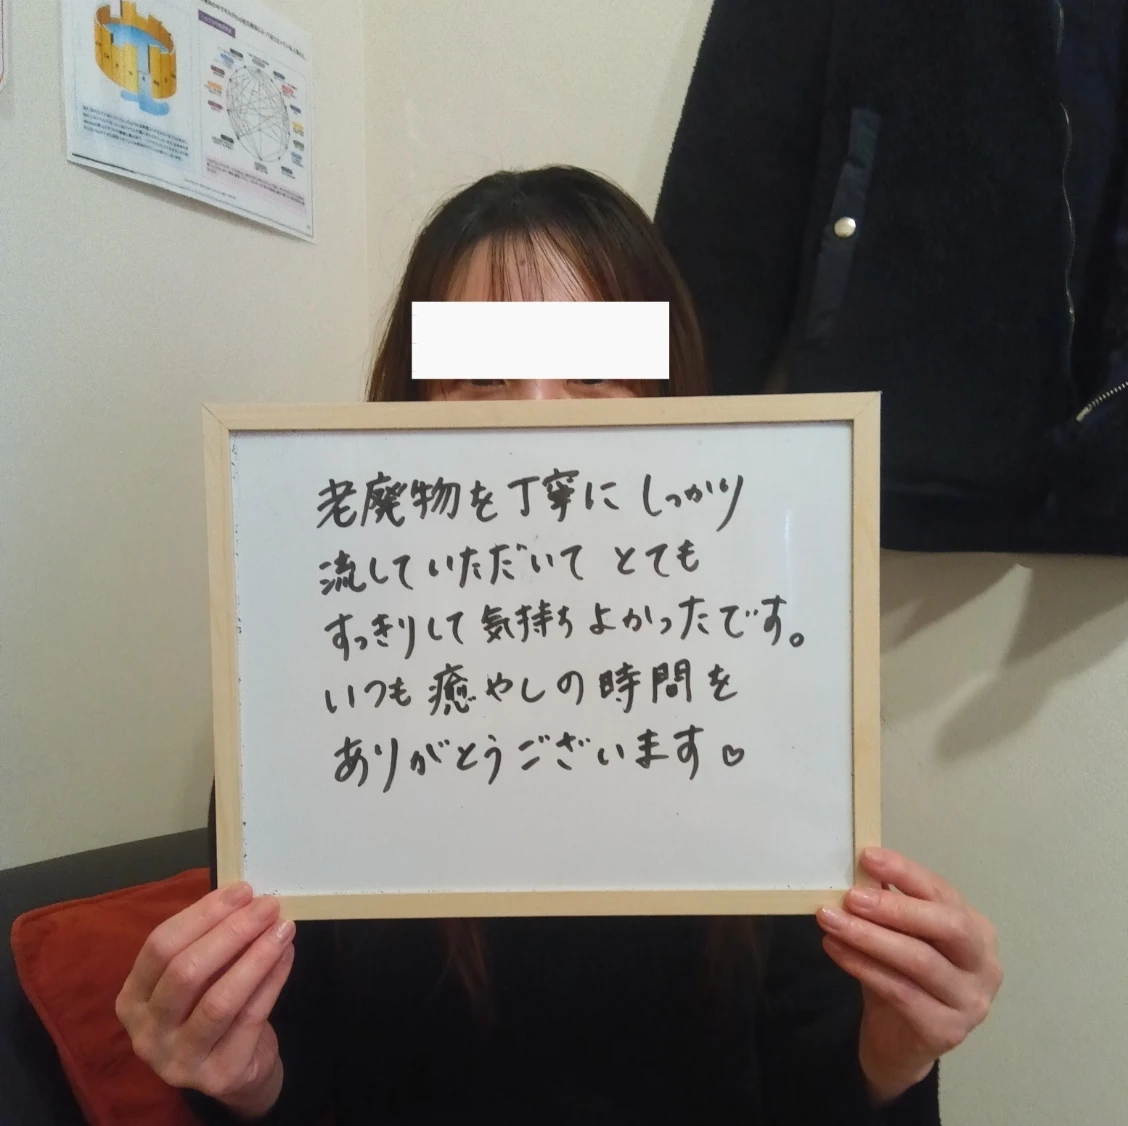 老廃物を丁寧にしっかり
流していただいて とても
すっきりして気持ちよかったです。
いつも癒やしの時間を
ありがとうございます♡